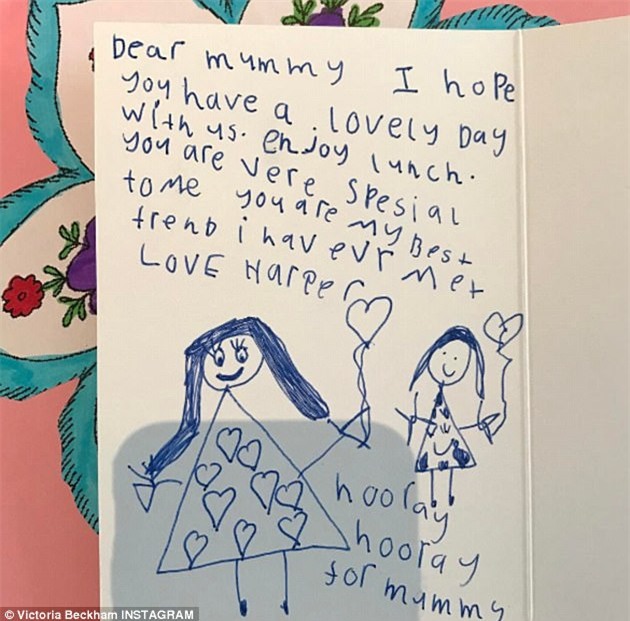 Dear mummy I hope
you have a lovely Day
with us. enjoy lunch.
you are vere spesial
to me you are my Best
frend i hav evr met
LOVE Harper
hooray
hooray
for mummy
© Victoria Beckham INSTAGRAM